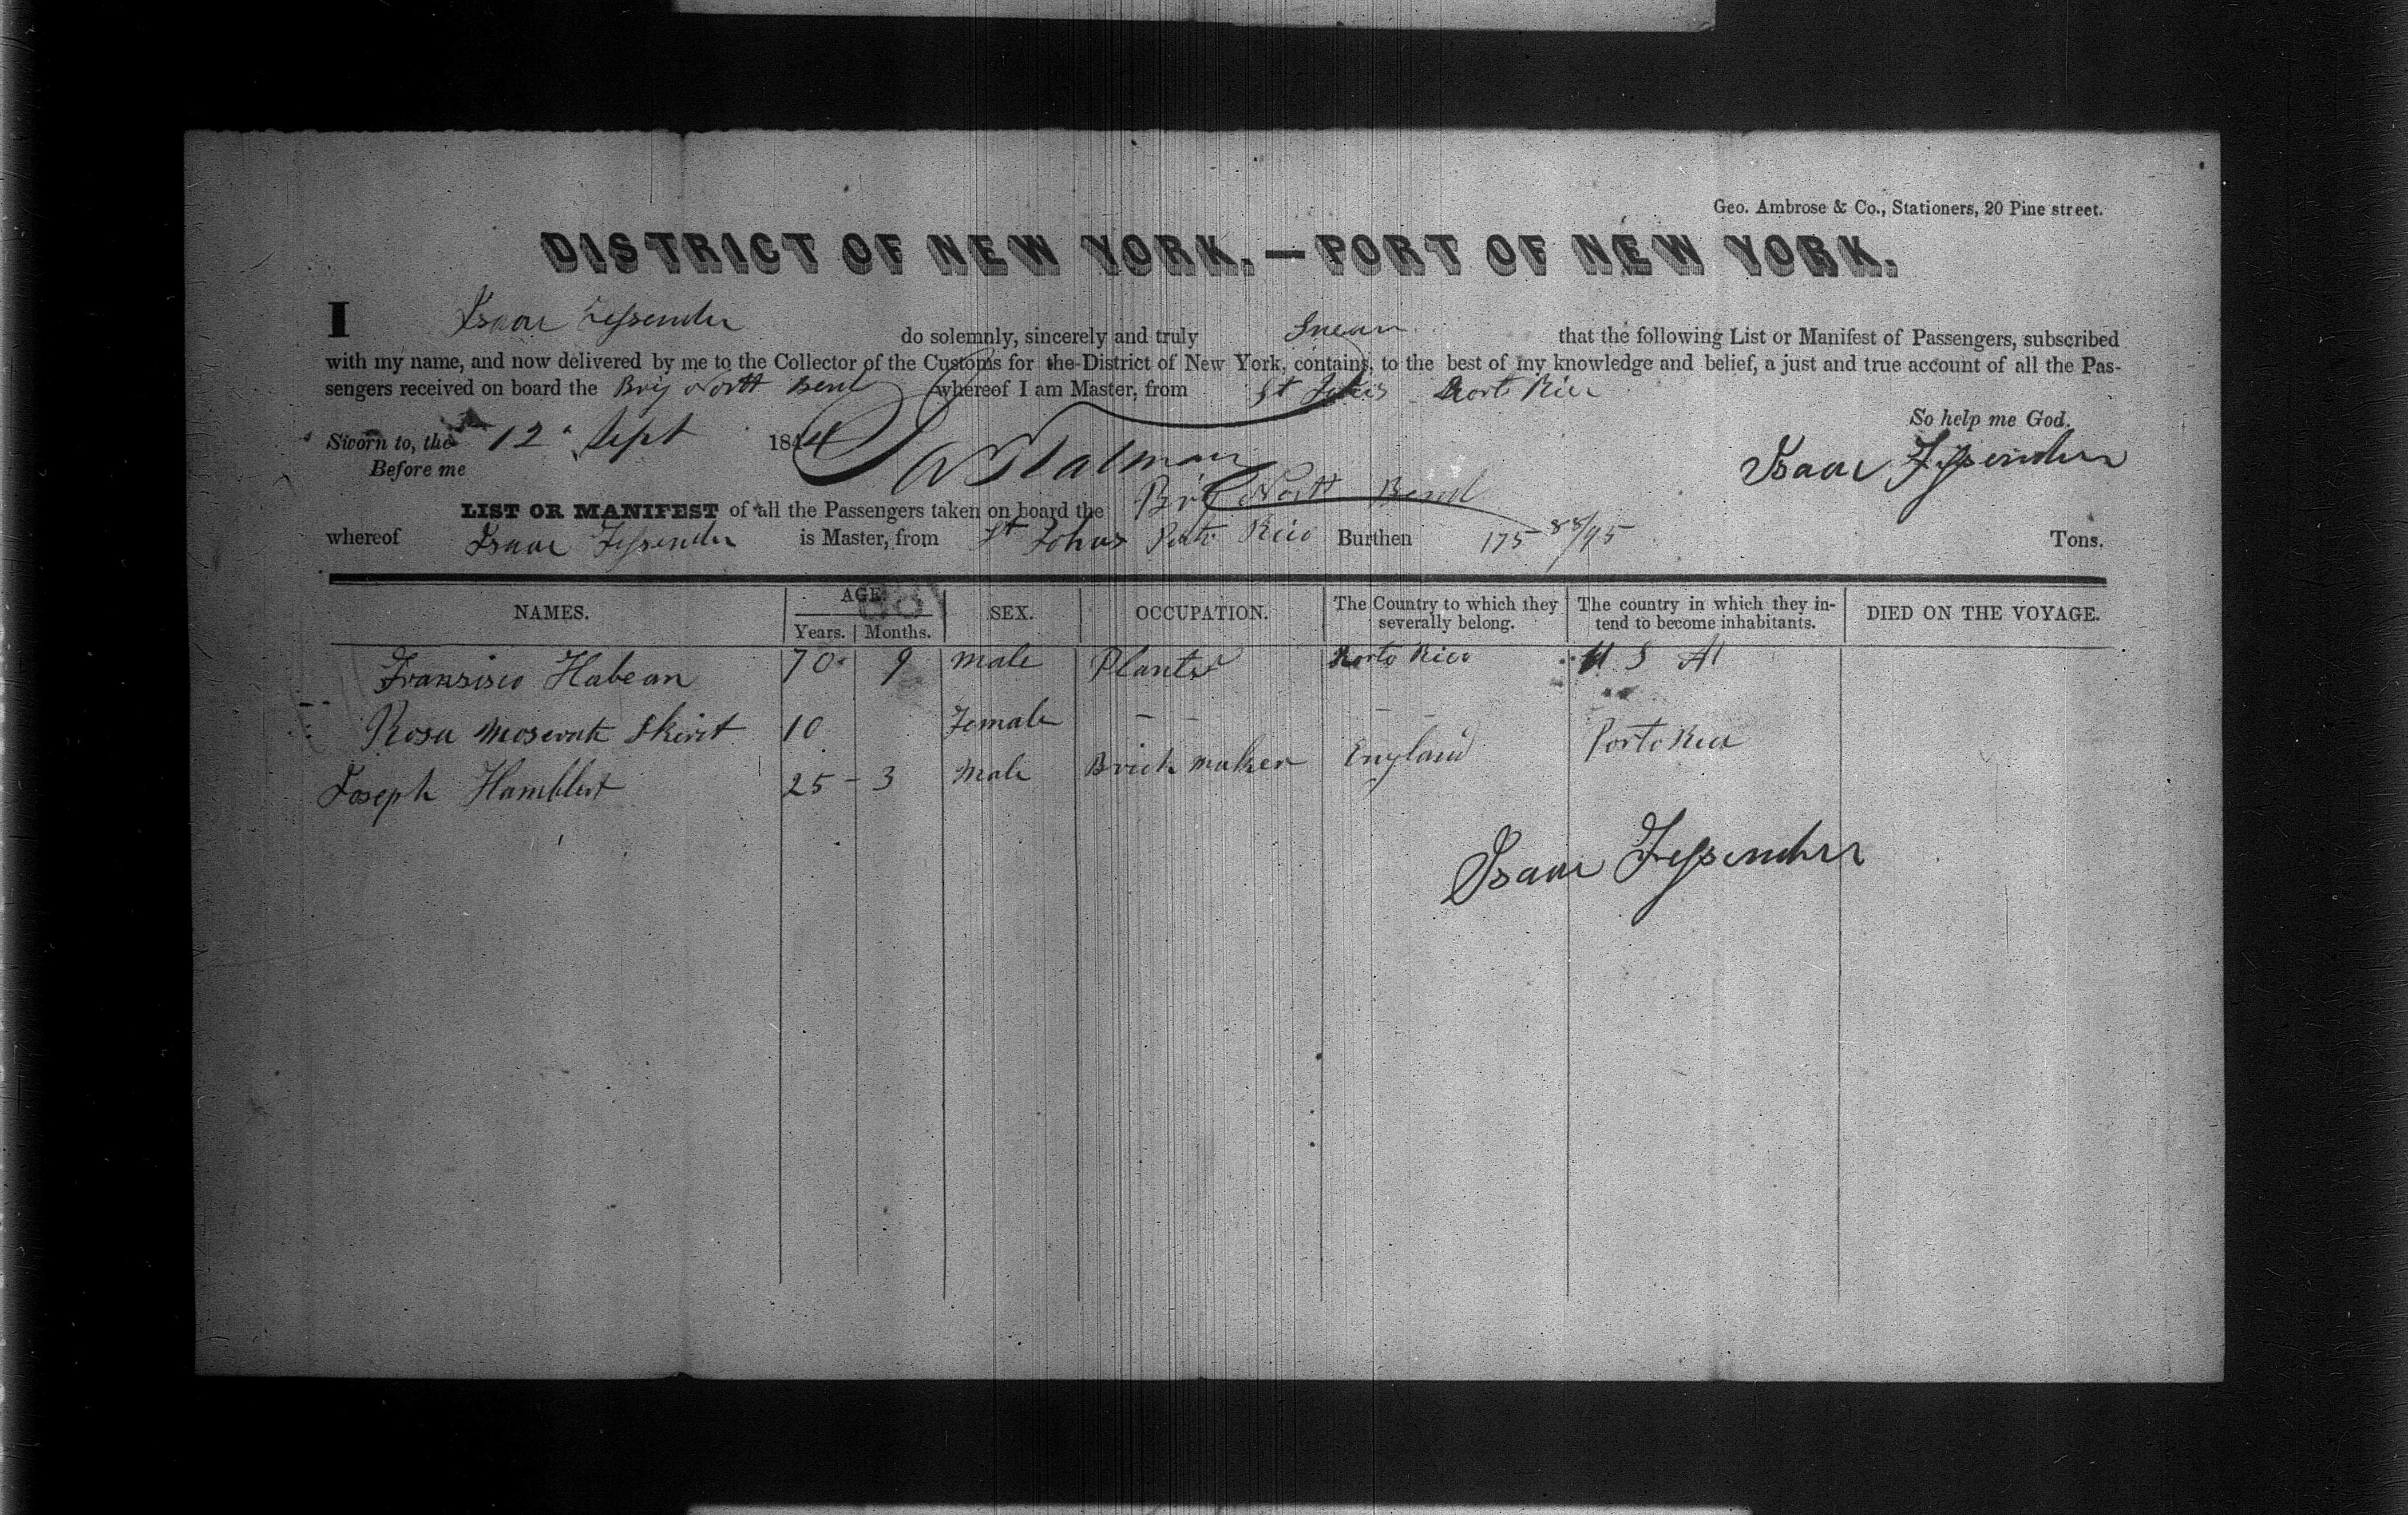 Geo. Ambrose & Co., Stationers, 20 Pine street.
DISTRICT OF NEW YORK.—PORT OF NEW YORK.
I Isaac Fessenden do solemnly, sincerely and truly Swear that the following List or Manifest of Passengers, subscribed
with my name, and now delivered by me to the Collector of the Customs for the District of New York, contains, to the best of my knowledge and belief, a just and true account of all the Pas-
sengers received on board the Brig North Bend whereof I am Master, from St Johns Porto Rico
So help me God.
Sworn to, the 12 Sept 1844 Isaac Fessenden
Before me
LIST OR MANIFEST of all the Passengers taken on board the Brig North Bend
whereof Isaac Fessenden is Master, from St Johns Porto Rico Burthen 175 88/95 Tons.
NAMES. AGE. Years. Months. SEX. OCCUPATION. The Country to which they severally belong. The country in which they in- tend to become inhabitants. DIED ON THE VOYAGE.
Fransisco Habean 70 9 male Planter Porto Rico U S
Rosa Skirit 10 Female - - - -
Joseph Hamblert 25 - 3 Male Brick maker England Porto Rico
Isaac Fessenden